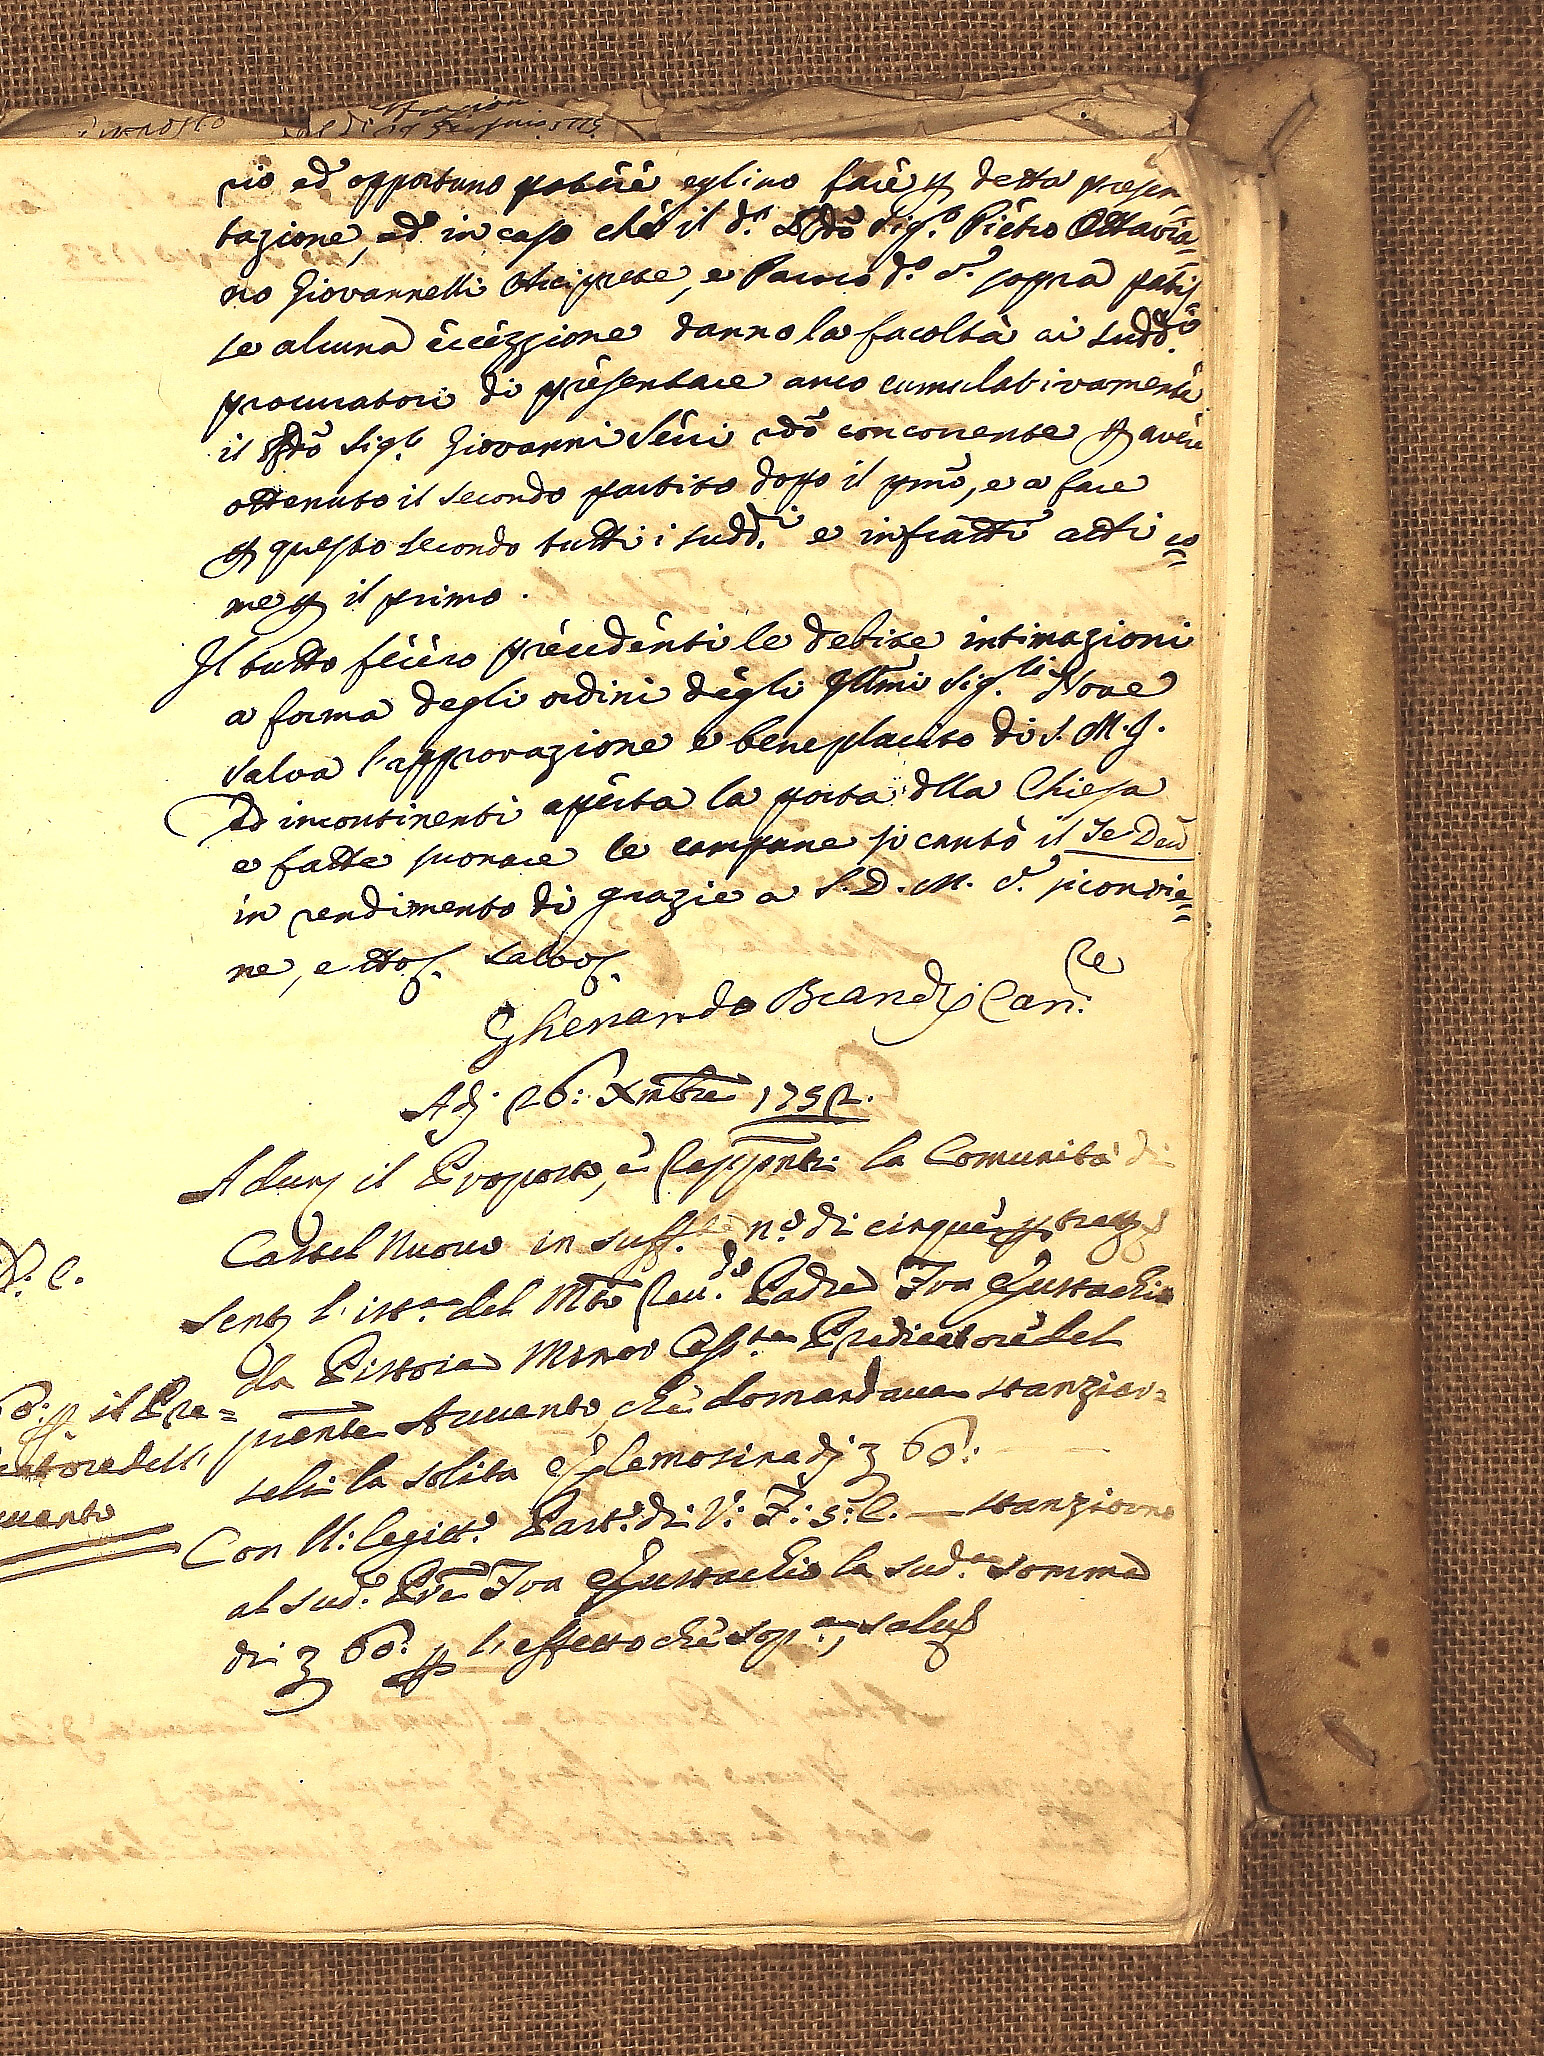 rio ed opportuno potere eglino fare p detta presen
tazione, ed in caso che il d.º Rdo Sig.r Pietro Ottavia=
no Giovannelli Arciprete, e Parroco d.º c.ª sopra patis
se alcuna eccezzione danno la facoltà ai sudd.i
procuratori di presentare anco cumulativamente
il Rdo Sig.r Giovanni Seri do concorrente p avere
ottenuto il secondo partito dopo il pmo, e a fare
p questo secondo tutti i sudd.i e infratti atti co=
me p il primo.
Il tutto fecero precedenti le debite intimazioni
a forma degli ordini degli Illmi Sig.ri Nove
salva l'approvazione e beneplacito di S. M. J.
Ed incontinenti aperta la porta dlla Chiesa
e fatte suonare le campane si cantò il Te Deu
in rendimento di grazie a S. D. M. c.ª si convie=
ne, e ttos. salvos.
Gherardo Brandi Can.re
Adj 26: Xmbre 1752.
Adun il Proposto, e Rapppnti la Comunità di
Castel Nuovo in suff.te n.º di cinque p trattj
Sentj l'ist.ª del Mto Reu.do Padre Fra Eustachio
da Pistoia Minor Oss.te Predicatore del
pnte Auuento, che domandaua stanziar=
seli la solita Elemosina dj 60:
Con U: legitt.º Part.º di V: F: 5: C. — stanziorno
al sud.º Pre Fra Eustachio la sud.ª somma
di 60: p l'effetto che sop.ª, saluj
60: p il Pre=
dell'
uuento